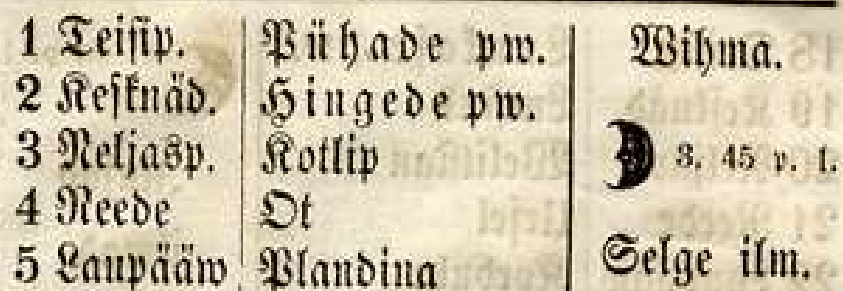 1 Teisip. Pühade pw. Wihma.
2 Kesknäd. Hingede pw.
3 Neljasp. Kotlip 3. 45 p. l.
4 Reede Ot
5 Laupääw Plandina Selge ilm.